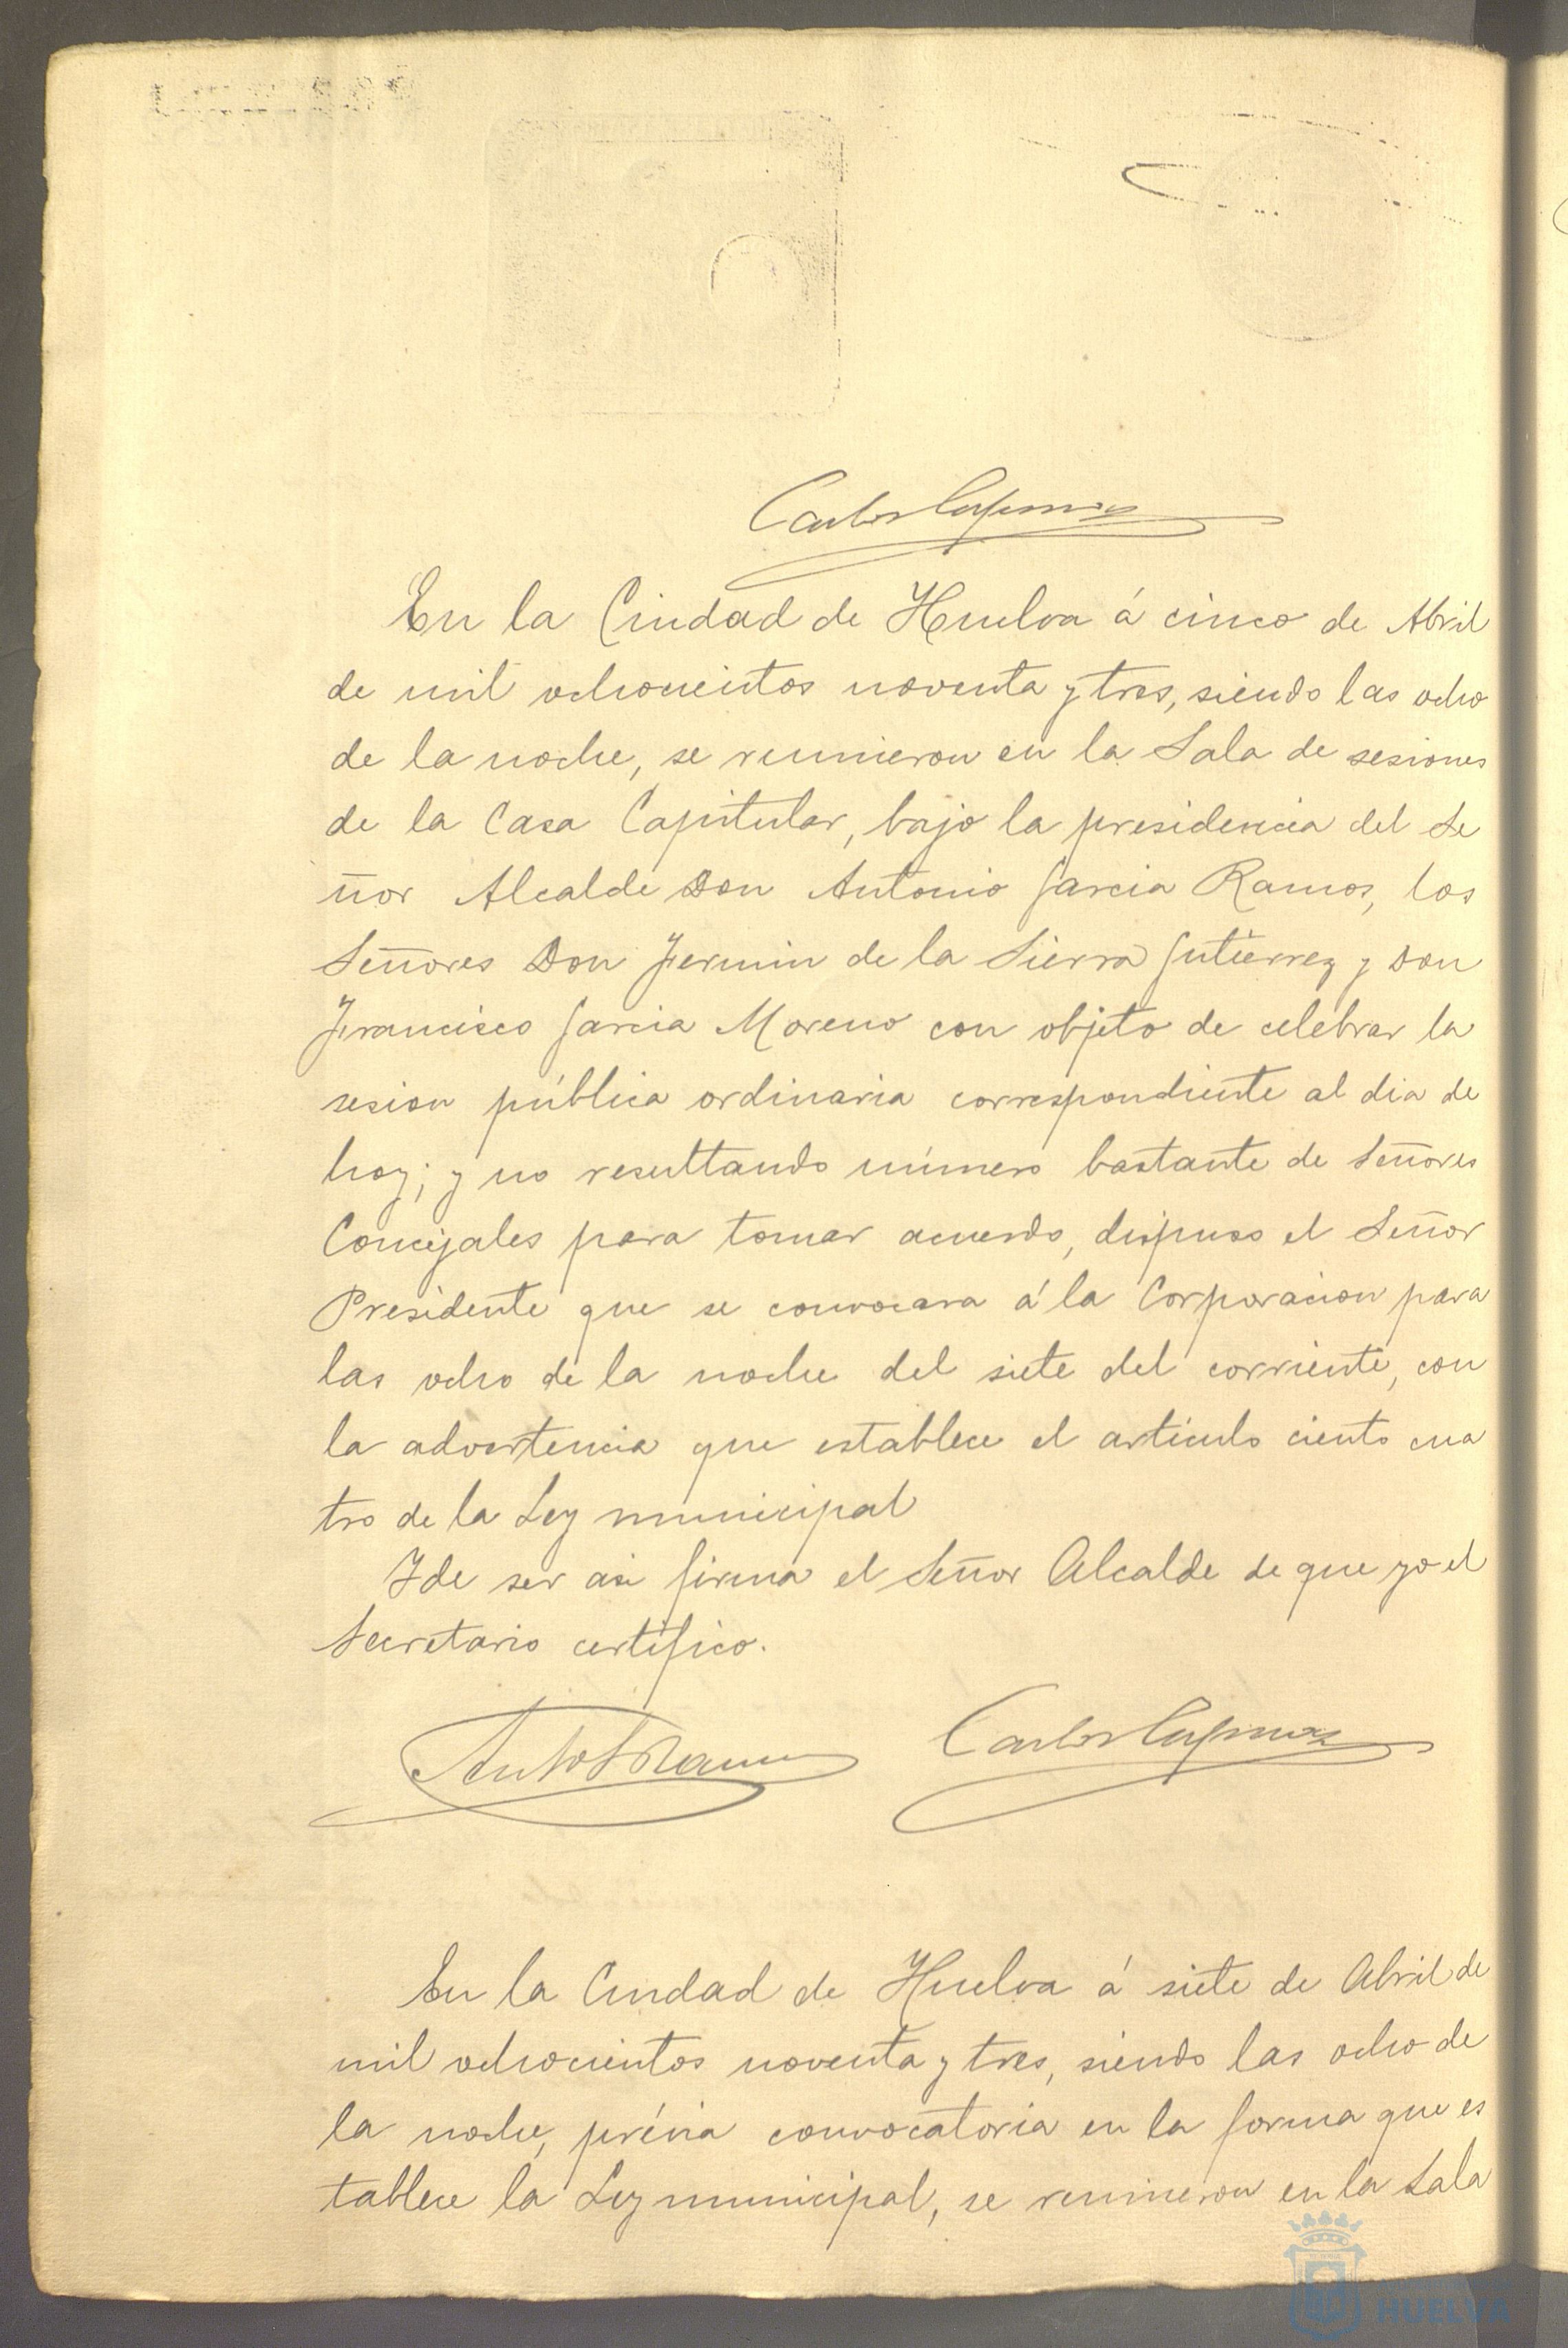 En la Ciudad de Huelva á cinco de Abril
de mil ochocientos noventa y tres, siendo las ocho
de la noche, se reunieron en la Sala de sesiones
de la Casa Capitular, bajo la presidencia del Se
ñor Alcalde Don Antonio Garcia Ramos, los
Señores Don Fermin de la Sierra Gutierrez y Don
Francisco Garcia Moreno con objeto de celebrar la
sesion pública ordinaria correspondiente al dia de
hoy; y no resultando número bastante de Señores
Concejales para tomar acuerdo, dispuso el Señor
Presidente que se convocara á la Corporacion para
las ocho de la noche del siete del corriente, con
la advertencia que establece el articulo ciento cua
tro de la Ley municipal
Y de ser asi firma el Señor Alcalde de que yo el
Secretario certifico.
En la Ciudad de Huelva á siete de Abril de
mil ochocientos noventa y tres, siendo las ocho de
la noche, prévia convocatoria en la forma que es
tablece la Ley municipal, se reunieron en la Sala
HUELVA